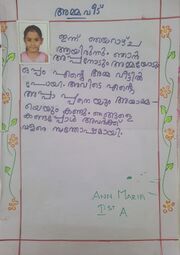 അമ്മ വീട്
ഇന്ന് ഞായറാഴ്ച
ആയിരുന്നു. ഞാൻ
അപ്പനോടും അമ്മയോടും
ഒപ്പം എന്റെ അമ്മ വീട്ടിൽ
പോയി. അവിടെ എന്റെ
അപ്പാപ്പനെയും അമ്മാമ്മ
യെയും കണ്ടു. ഞങ്ങളെ
കണ്ടപ്പോൾ അവർക്ക്
വളരെ സന്തോഷമായി.
ANN MARIA
1st A